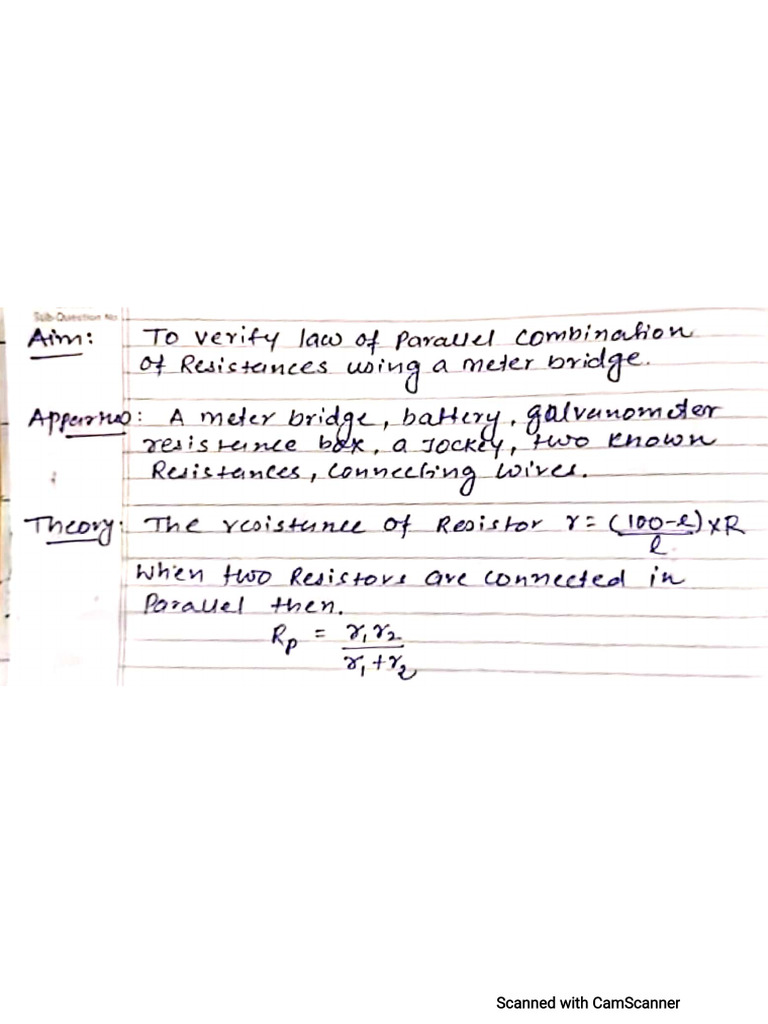 Sub-Question No
Aim: To verify law of Parallel combination
of Resistances using a meter bridge.
Apparatus: A meter bridge, battery, galvanometer
resistance box, a Jockey, two known
Resistances, connecting wires.
Theory: The resistance of Resistor r = (100-l)/l × R
When two Resistors are connected in
Parallel then.
Rp = r₁r₂/r₁+r₂
Scanned with CamScanner